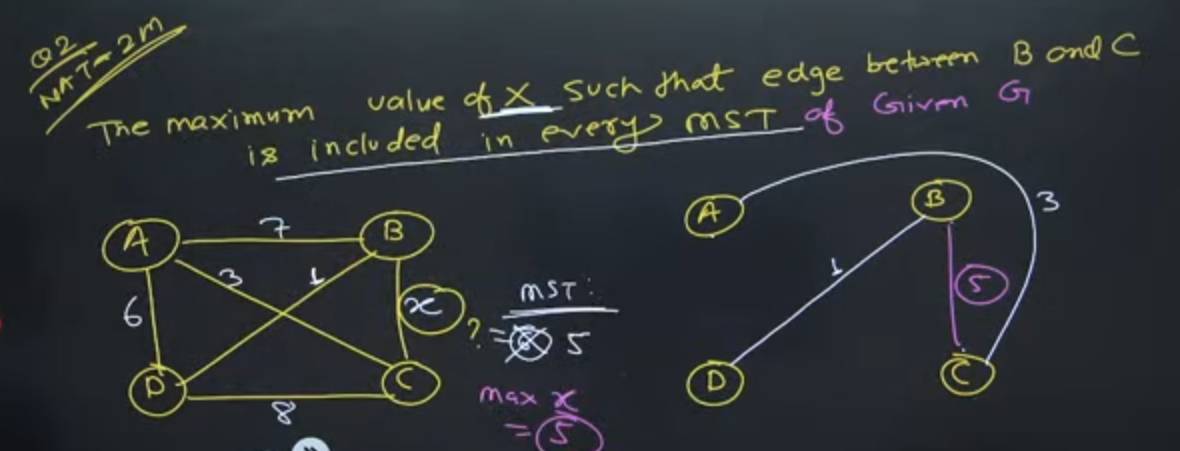 Q2
NAT-2M
The maximum value of X such that edge between B and C
is included in every MST of Given G
A 7 B
6 3 1 x
D 8 C
MST:
? = 5
max x
= 5
A B 3
1 5
D C